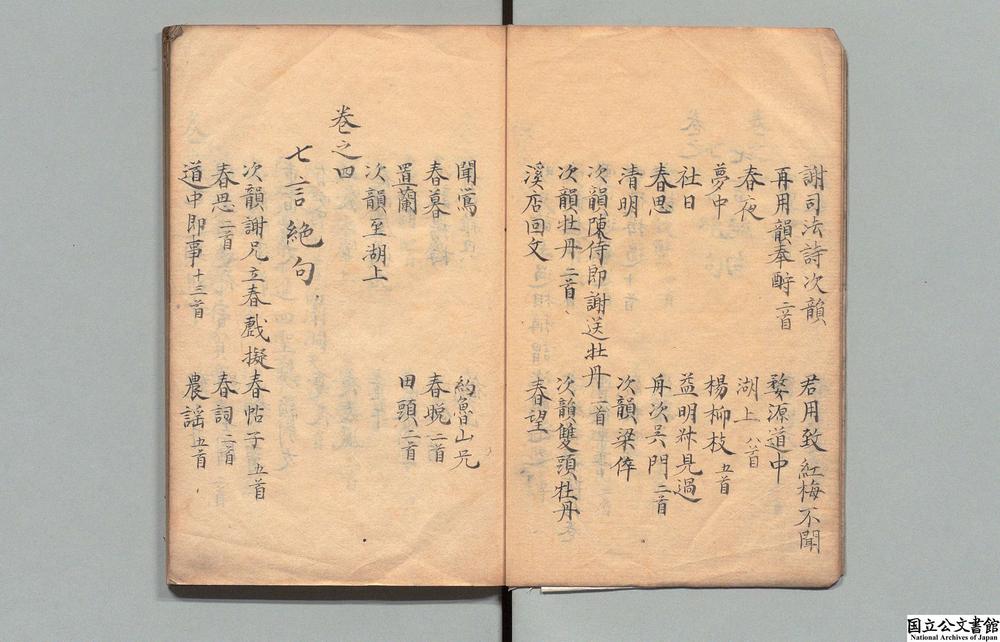 謝司法詩次韻 君用致紅梅不開
再用韻奉酧二首 婺源道中
春夜 湖上八首
夢中 楊柳枝五首
社日 益明𠦑見過
春思 舟次吳門二首
清明 次韻梁倅
次韻陳侍郎謝送牡丹二首
次韻牡丹二首 次韻雙頭牡丹
溪店回文 春望
聞鶯 約魯山兄
春暮 春晚二首
置蘭 田頭二首
次韻至湖上
卷之四
七言絶句
次韻謝兄立春戲擬春帖子五首
春思二首 春詞二首
道中即事十三首 農謡五首
国立公文書館
National Archives of Japan